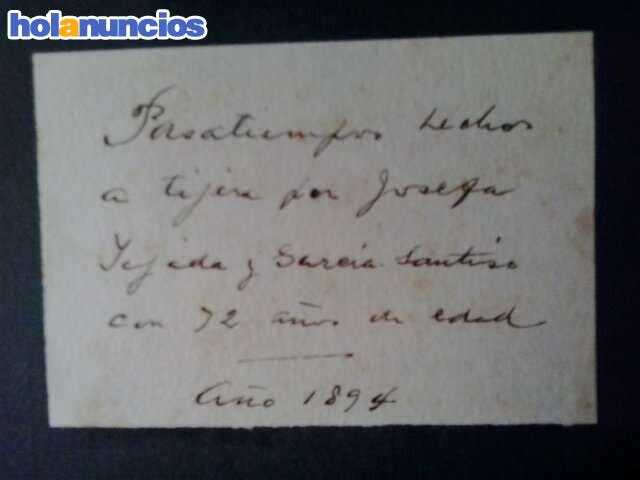 holanuncios
Pasatiempos hechos
a tijera por Josefa
Tejada y García Santiso
con 72 años de edad
Año 1894